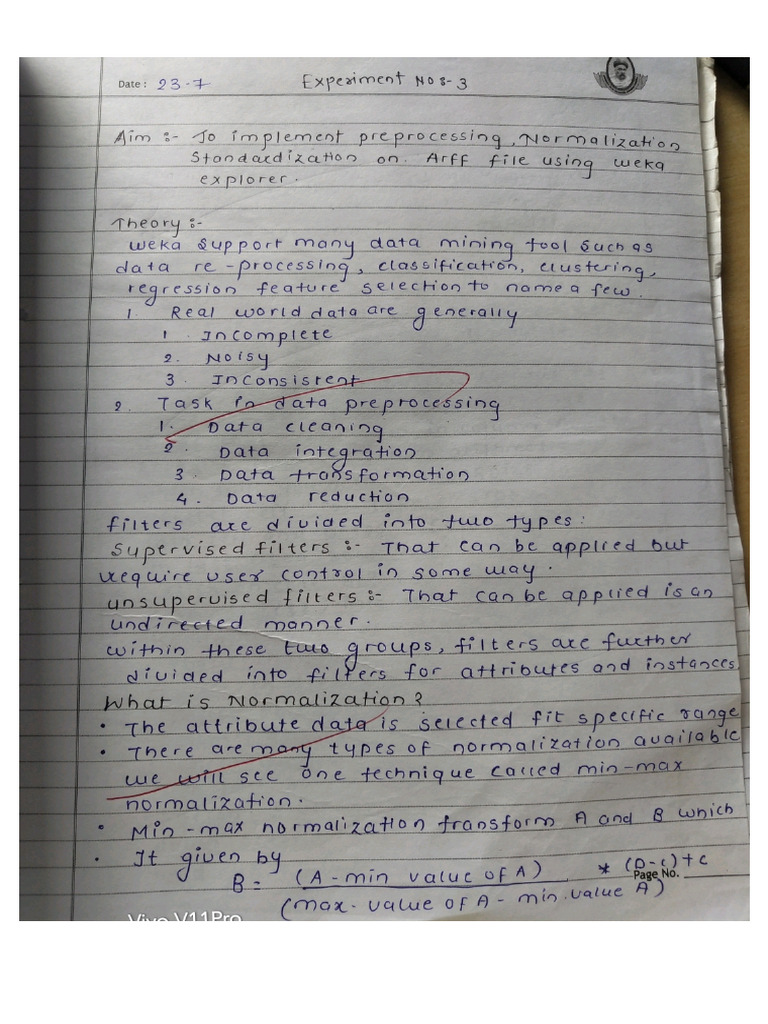 Date : 23-7
Experiment NO :- 3
Aim :- To implement preprocessing, Normalization
Standardization on Arff file using weka
explorer.
Theory :-
weka support many data mining tool such as
data re-processing, classification, clustering,
regression feature selection to name a few.
1. Real world data are generally
1. Incomplete
2. Noisy
3. Inconsistent
2. Task in data preprocessing
1. Data cleaning
2. Data integration
3. Data transformation
4. Data reduction
filters are divided into two types:
Supervised filters :- That can be applied but
require user control in some way.
unsupervised filters :- That can be applied is an
undirected manner.
within these two groups, filters are further
divided into filters for attributes and instances
What is Normalization?
• The attribute data is selected fit specific range
• There are many types of normalization available
we will see one technique called min-max
normalization.
• Min-max normalization transform A and B which
• It given by
B = (A - min value of A) * (D-c)+c
(max. value of A - min. value A)
Page No.
Vivo V11Pro